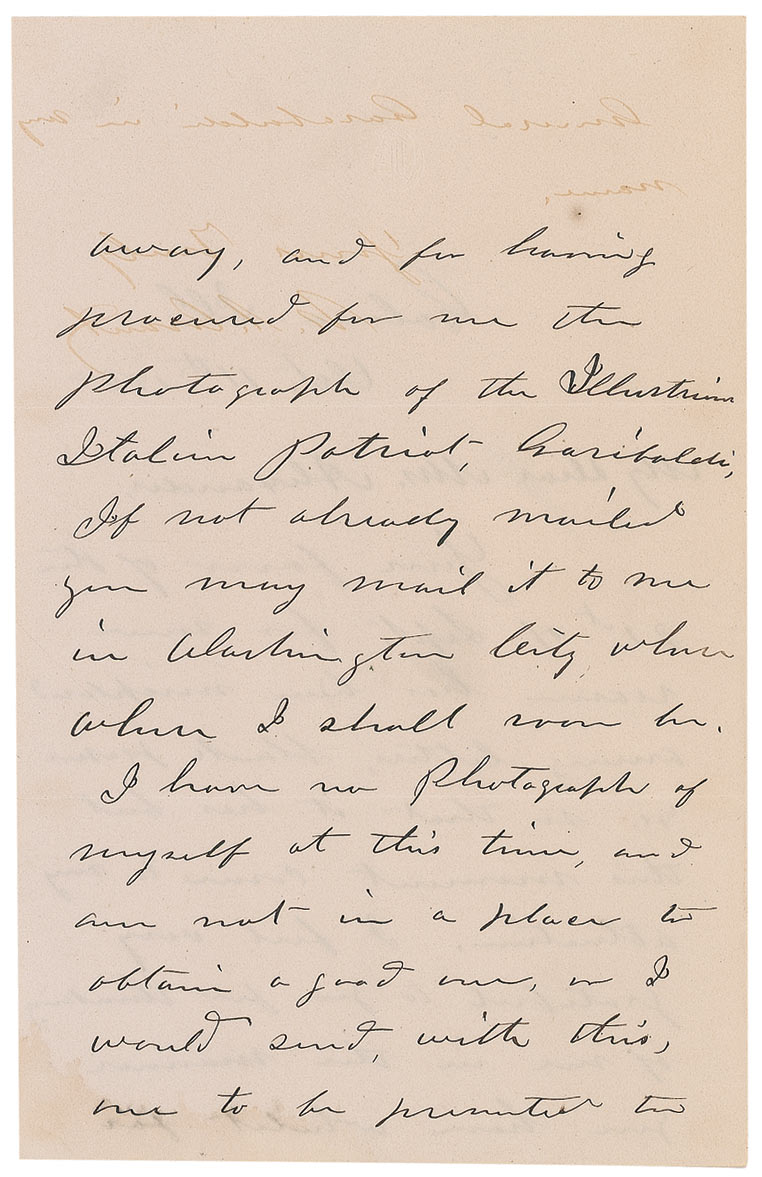 away, and for having
procured for me the
photograph of the Illustrious
Italian Patriot, Garibaldi,
If not already mailed
you may mail it to me
in Washington City, where
where I shall soon be.
I have no Photograph of
myself at this time, and
am not in a place to
obtain a good one, or I
would send, with this,
one to be presented to